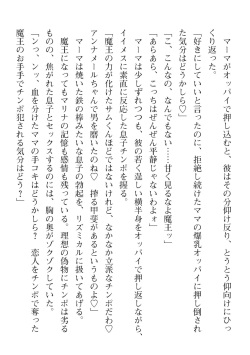 マーマがオッパイで押し込むと、彼はその分仰け反り、とうとう仰向けにひっくり返った。
「好きにしていいって言ったのに、拒絶し続けたママの爆乳オッパイに押し倒された気分はどうかしら♡」
「こ、こんなの、なんでもない……甘く見るなよ魔王ッ」
「あらあら、こっちはぜんぜん平静じゃないわねォ」
マーマは少しずれつつも、彼の若く逞しい横半身をオッパイで押し返しながら、イイメスに素直に反応した息子チンポを握る。
「魔王の力が化けたサムくんほどではないけれど、なかなか立派なチンポだわ♡アンナメールちゃんで男を磨いたのね♡　搾る甲斐があるというものよ♡」
マーマは焼いた鉄の棒みたいな息子の勃起を、リズミカルに扱いてあげる。
魔王になってもマリナの記憶も感情も残っている。理想の偽物にチンポは劣るものの、焦がれた息子とセックスするのには、胸の奥がゾクゾクしていた。
「ンっ、ンッ、血を分けたママの手コキはどうかしら？　恋人をチンポで奪った魔王のお手手でチンポ犯される気分はどう？」